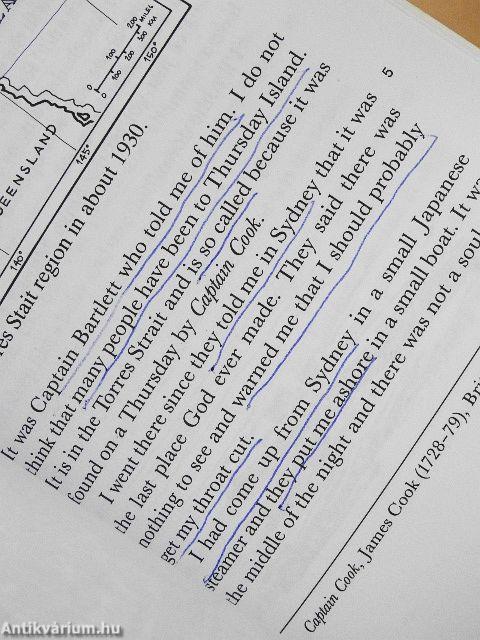 200 MILES
300 KM
0 100 200
0 100
150°
145°
140°
UEENSLAND
res Stait region in about 1930.
It was Captain Bartlett who told me of him. I do not
think that many people have been to Thursday Island.
It is in the Torres Strait and is so called because it was
found on a Thursday by Captain Cook.
I went there since they told me in Sydney that it was 5
the last place God ever made. They said there was
nothing to see and warned me that I should probably
get my throat cut.
I had come up from Sydney in a small Japanese
steamer and they put me ashore in a small boat. It wa
the middle of the night and there was not a soul
Captain Cook, James Cook (1728–79), Bri
Antikvárium.hu